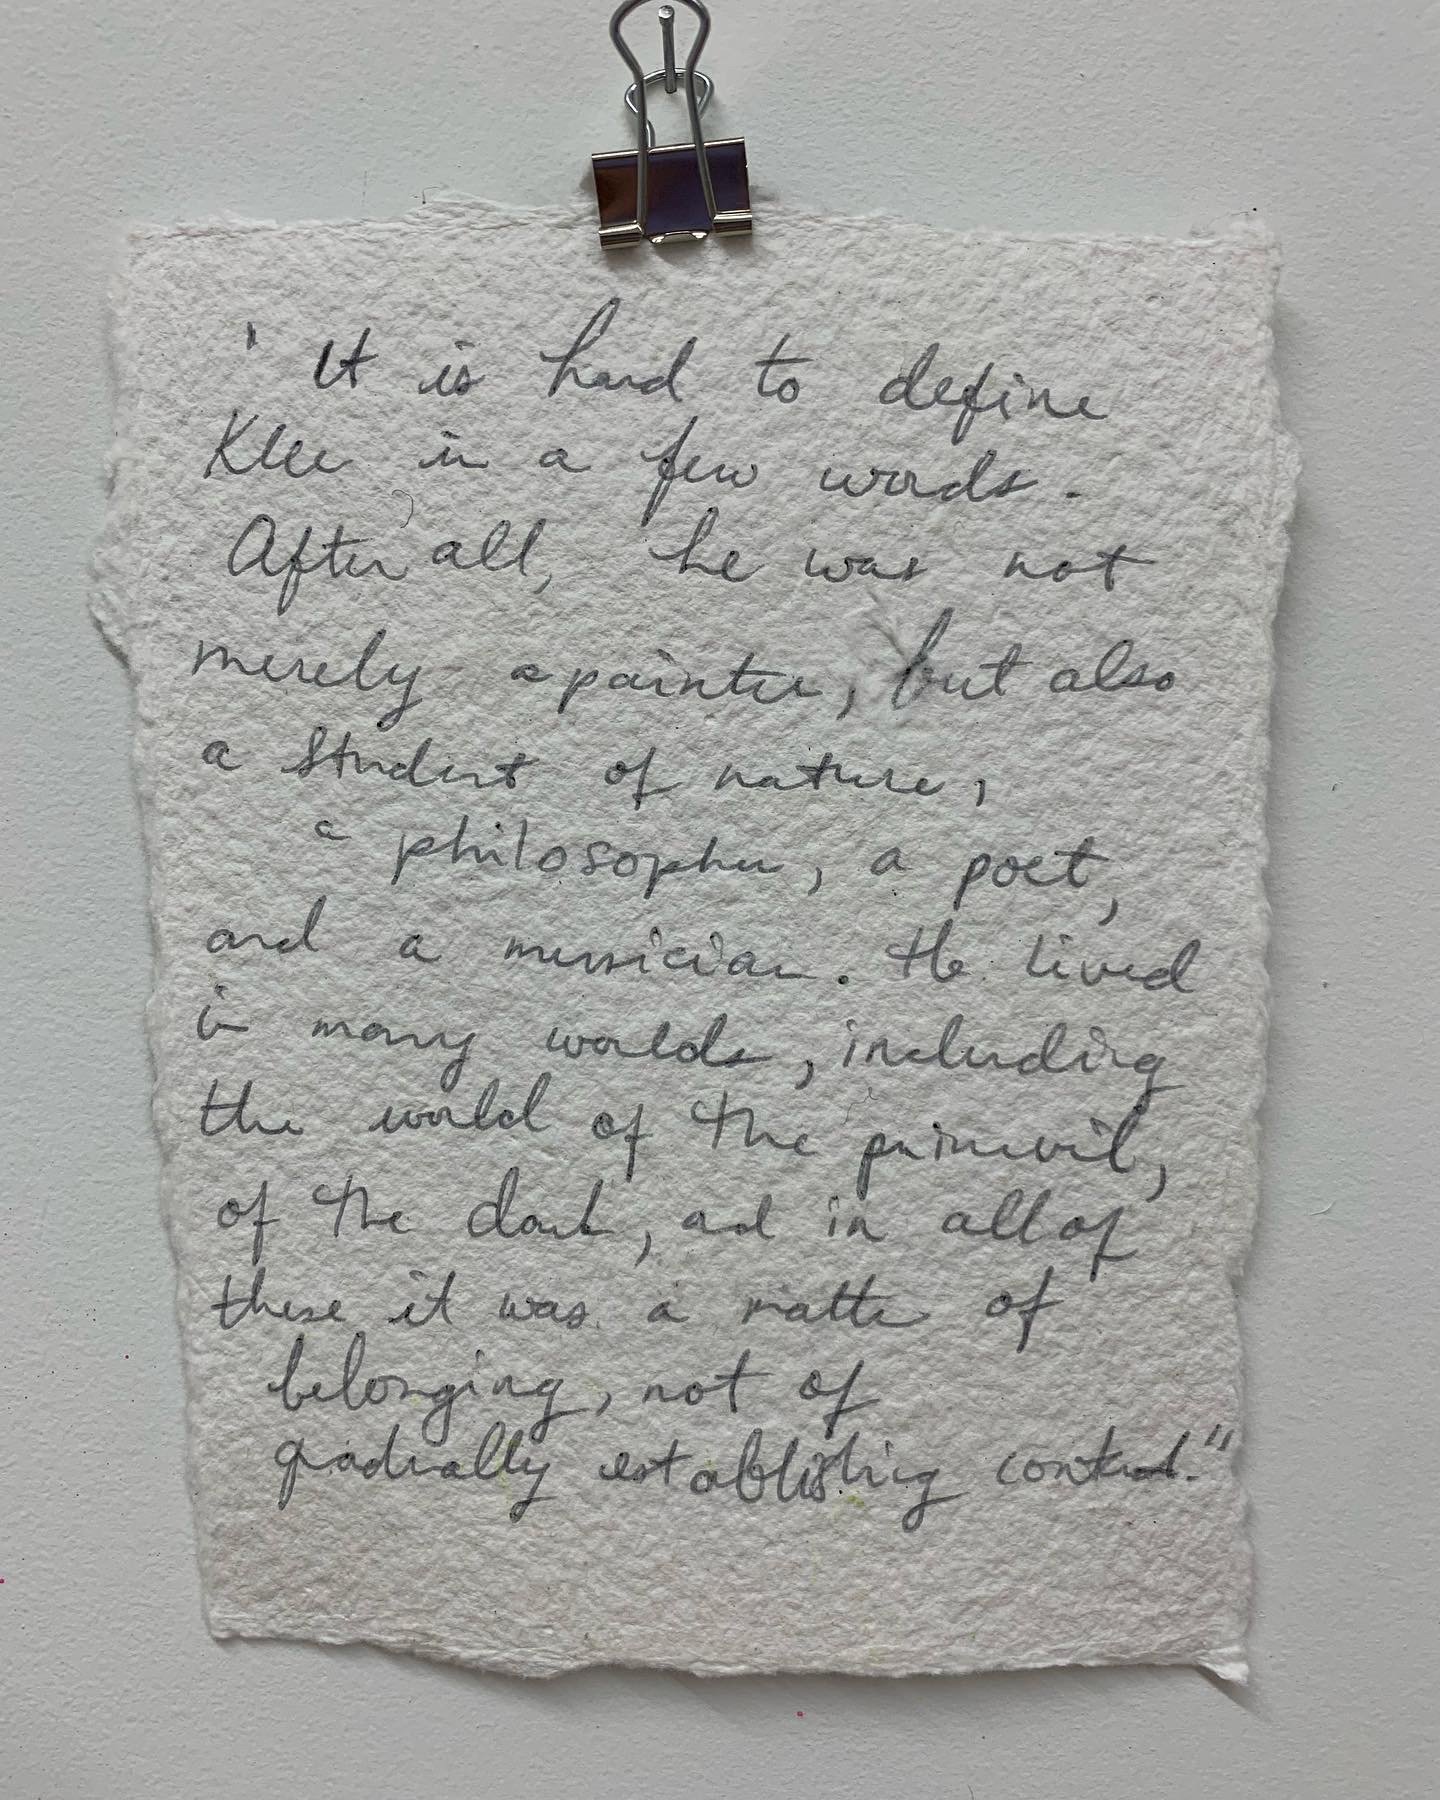 " It is hard to define
Klee in a few words.
After all, he was not
merely a painter, but also
a student of nature,
a philosopher, a poet,
and a musician. He lived
in many worlds, including
the world of the primevil,
of the dark, and in all of
these it was a matter of
belonging, not of
gradually establishing control."